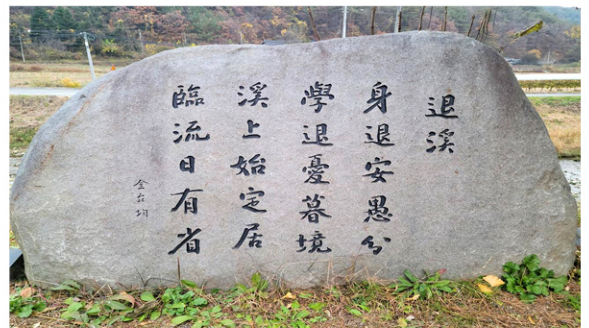 退溪
身退安愚分
學退憂暮境
溪上始定居
臨流日有省